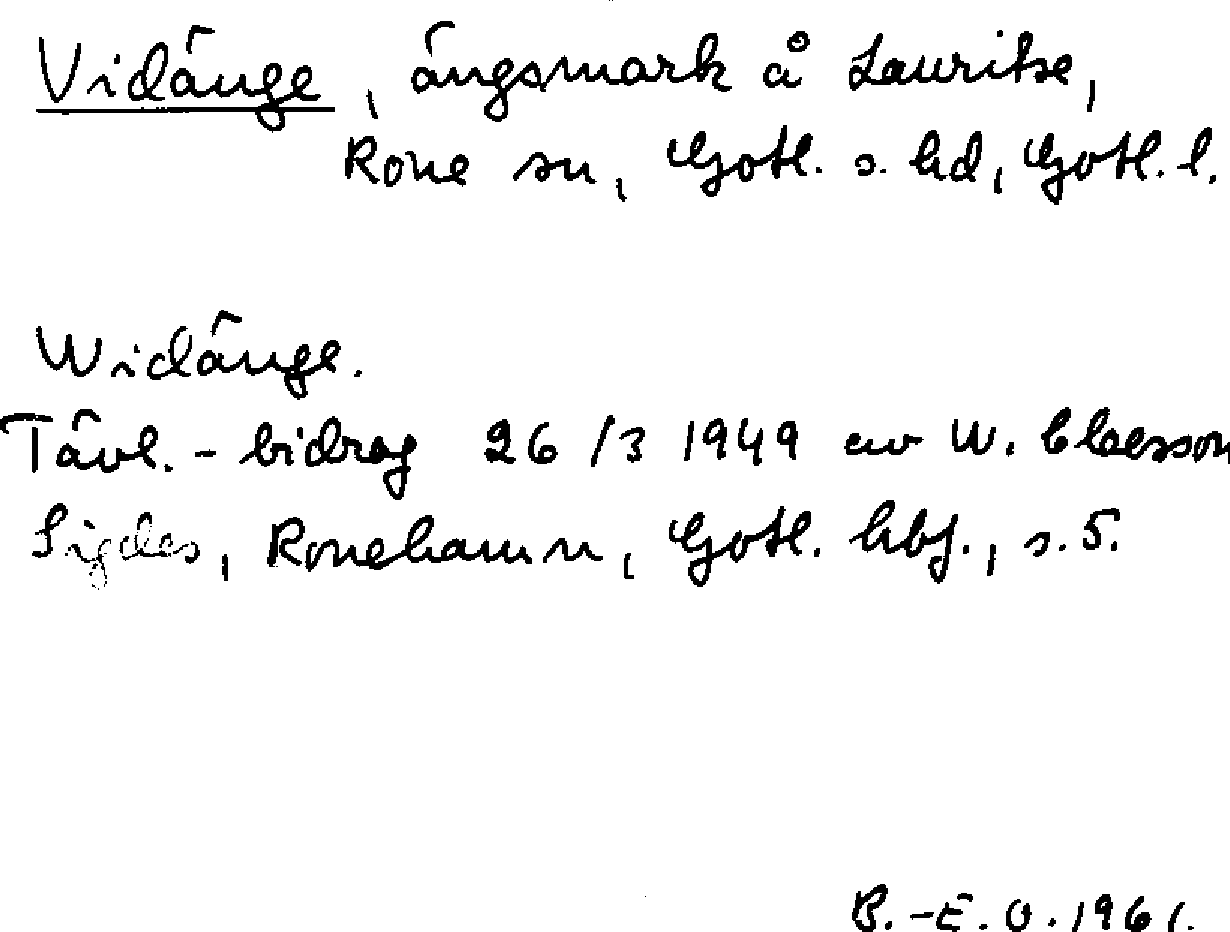 Vidänge, ängsmark å Lauritse,
Rone sn, Gotl. s. hd, Gotl. l.
Widänge.
Tävl. - bidrag 26/3 1949 av W. Claesson
Sigdes, Ronehamn, Gotl. hbf., s. 5.
B.-E. O. 1961.